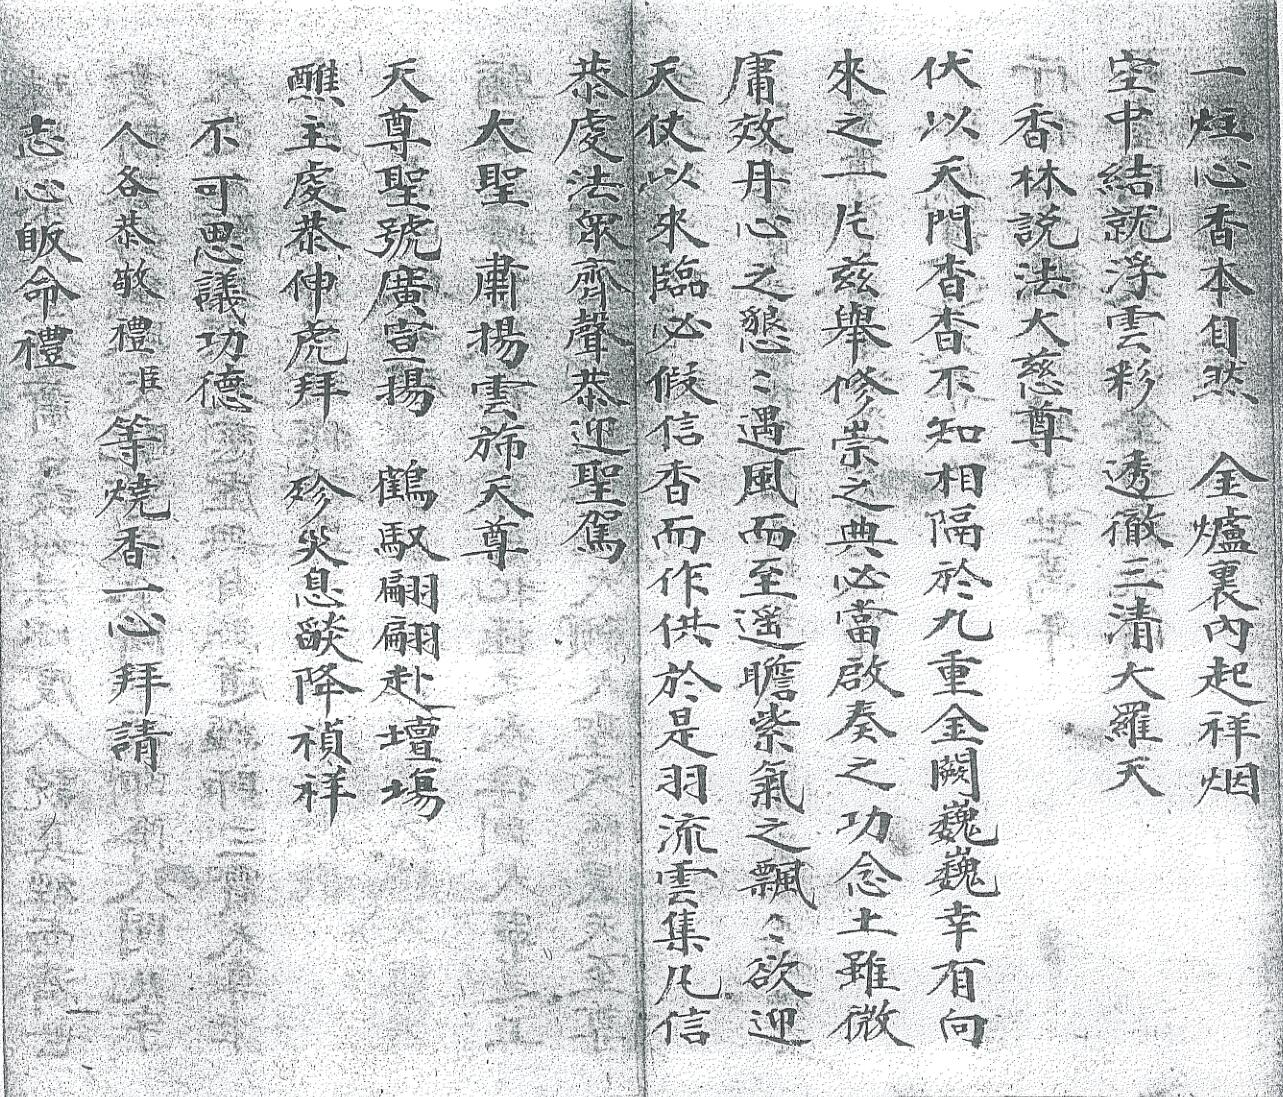 一炷心香本自然　金爐裏内起祥烟
空中結就浮雲彩　透徹三清大羅天
香林説法大慈尊
伏以天門杳杳不知相隔於九重金闕巍巍幸有向
來之一片兹舉修崇之典必當啟奏之功念土雖微
庸效丹心之懇〻遇風而至遥瞻紫氣之飄〻欲迎
天仗以來臨必假信香而作供於是羽流雲集凡信
恭虔法衆齊聲恭迎聖駕
大聖　肅揚雲斾天尊
天尊聖號廣宣揚　鶴馭翩翩赴壇場
醮主虔恭伸虎拜　殄灾息𦦨降禎祥
不可思議功德
人各恭敬禮臣等燒香一心拜請
志心皈命禮